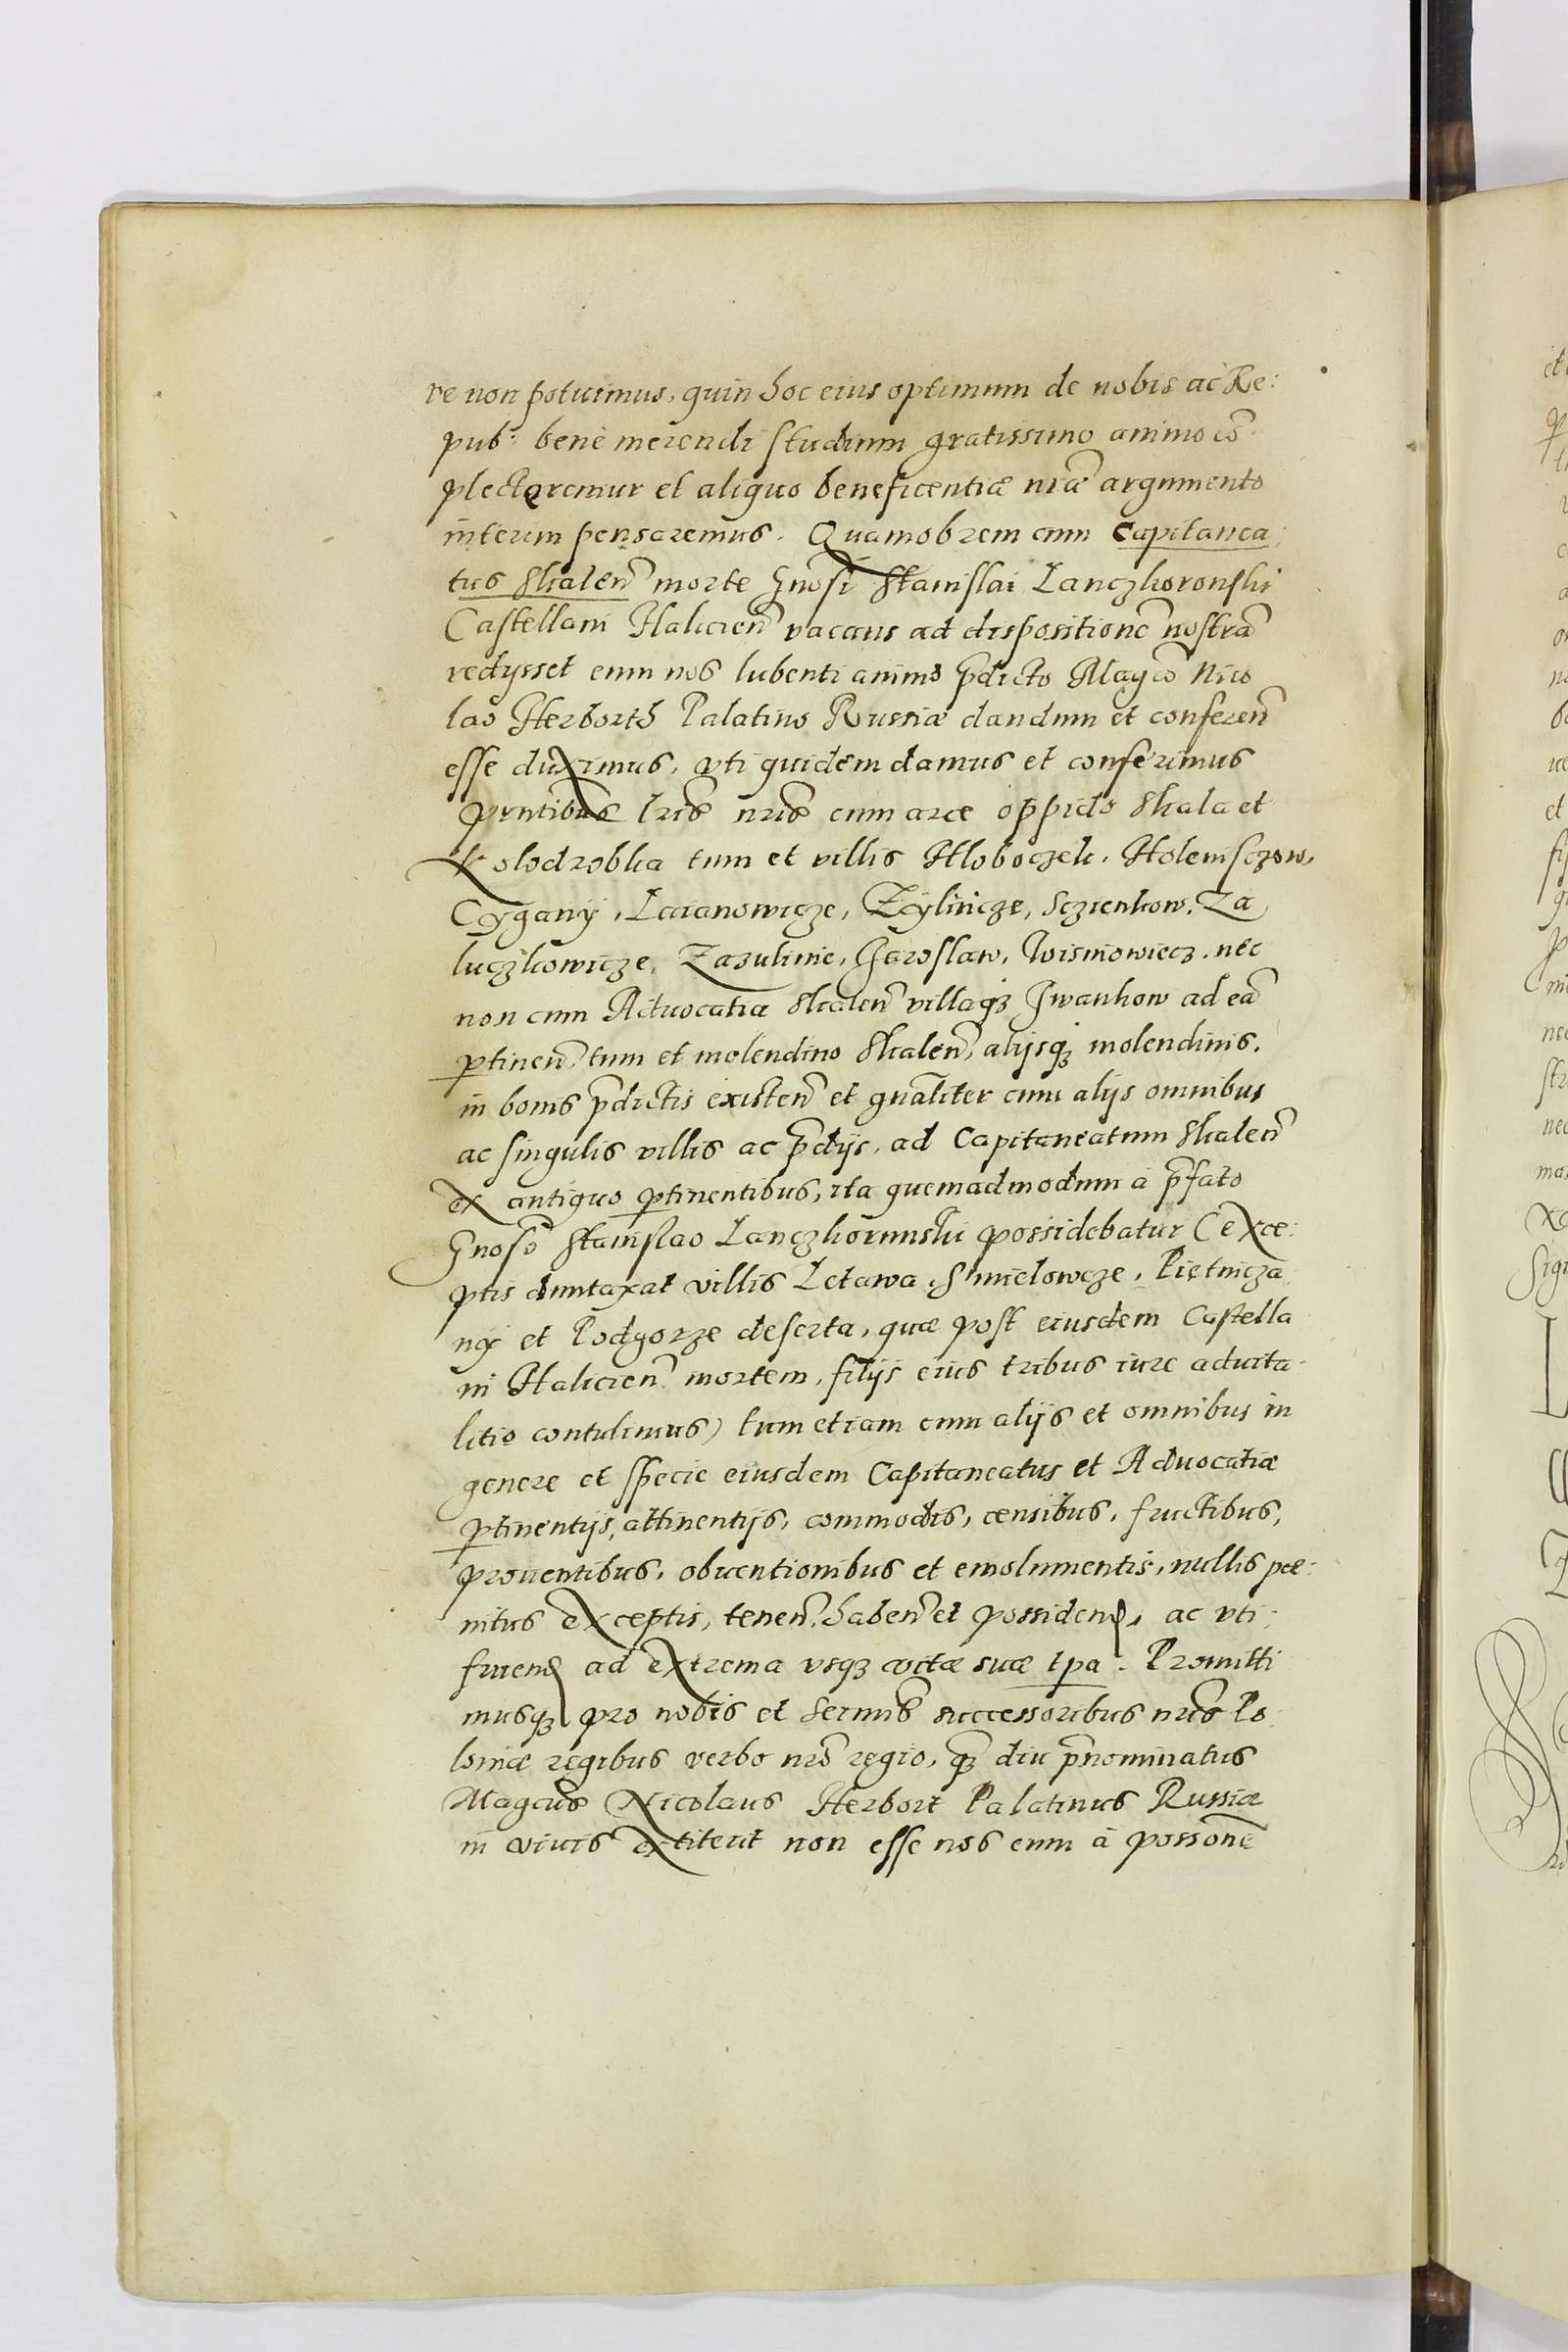 re non potuimus, quin hoc eius optimum de nobis ac Re:
pub: bene merendi studium gratissimo animo cõ
plecteremur et aliquo beneficentiæ nrãe argumento
interim pensaremus. Quamobrem cum Capitanea
tus Skaleñ morte Gnosi Stanislai Lanczkoronski
Castellani Halicieñ vacans ad dispositionẽ nostrã
redijsset eum nos lubenti animo p̃dicto Mag̃co Nico
lao Herborth Palatino Russiæ dandum et conferen̄
esse duximus, vti quidem damus et conferimus
pr̃ntibus lr̃is nr̃is cum arce oppido Skala et
Kolodrobka tum et villis Hloboczek, Holenisczow,
Cygany, Loianowicze, Zylincze, Sczienkow, Za
luczkowicze, Zazulinie, Jaroslaw, Wisniowiecz, nec
non cum Aduocatia Skaleñ villaqȝ Iwankow ad eã
ptineñ tum et molendino Skaleñ, alijsqȝ molendinis,
in bonis p̃dictis existeñ et gnãliter cum alijs omnibus
ac singulis villis ac p̃dijs, ad Capitaneatum Skaleñ
ex antiquo ptinentibus, ita quemadmodum à p̃fato
Gnoso Stanislao Lanczkorunski possidebatur (exce:
ptis duntaxat villis Letawa, Smielowcze, Pietnicza
ny et Podgorze deserta, quæ post eiusdem Castella
ni Halicieñ mortem, filijs eius tribus iure aduita
litio contulimus) tum etiam cum alijs et omnibus in
genere et specie eiusdem Capitaneatus et Aduocatiæ
ptinentijs, attinentijs, commodis, censibus, fructibus,
prouentibus, obuentionibus et emolumentis, nullis pæ:
nitus exceptis, teneñ, habeñ et possidenđ, ac vti
fruenđ ad extrema vsqȝ vitæ suæ tpa. Promitti
musqȝ pro nobis et Sermis successoribus nr̃is Po
loniæ regibus verbo nro regio, qȝ diu p̃nominatus
Magcus Nicolaus Herbort Palatinus Russiæ
in viuis extiterit non esse nos eum à possonẽ